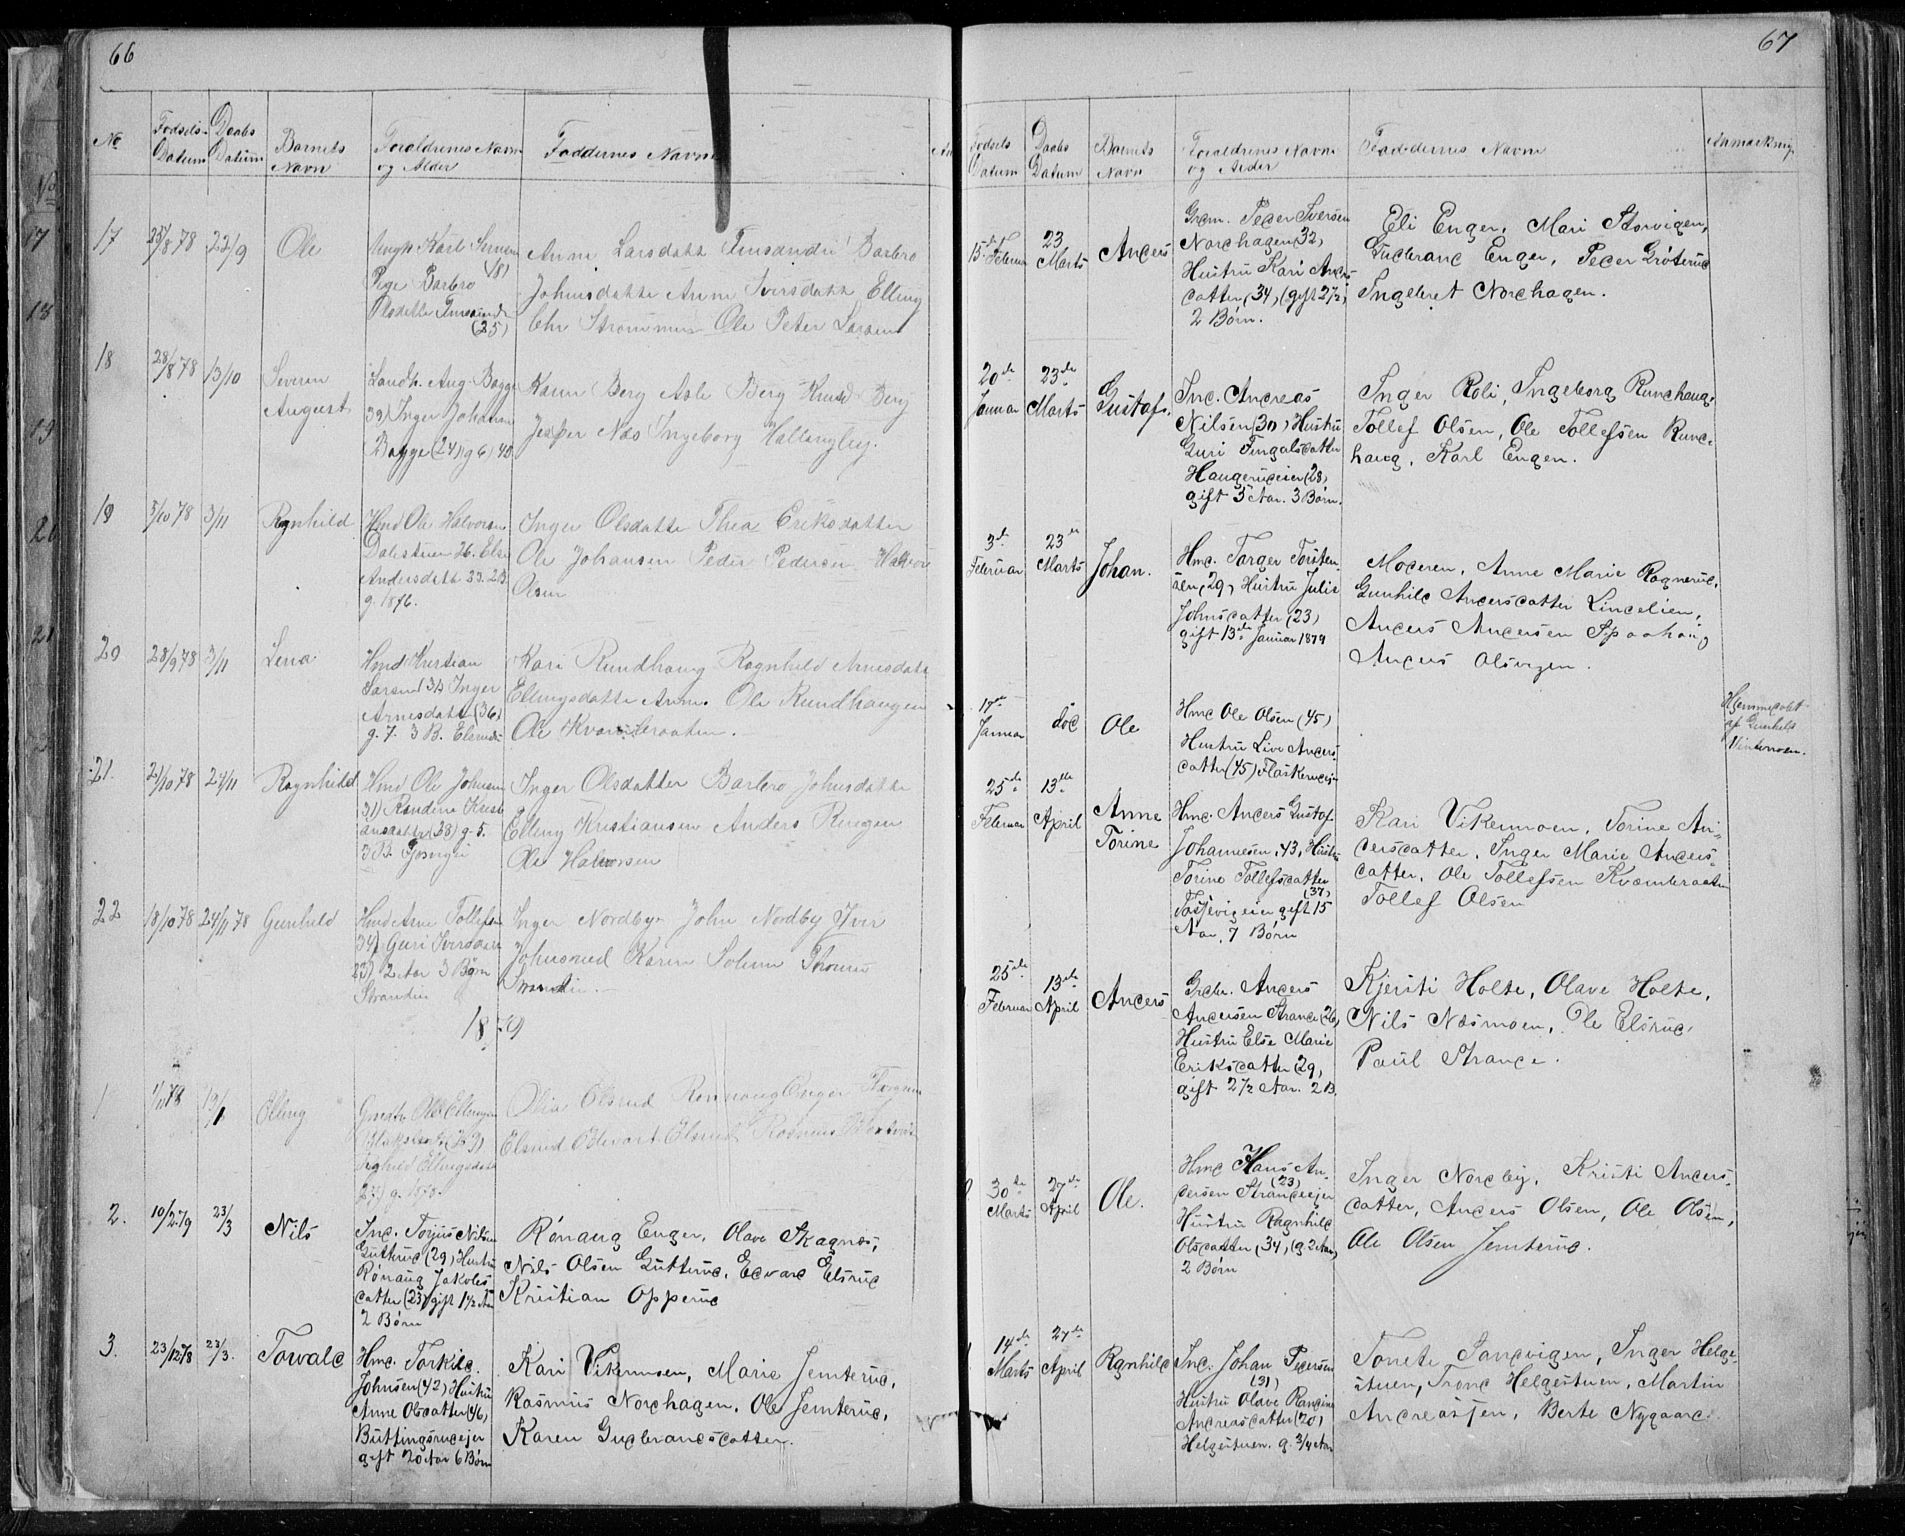 66
No
Fødsels-
Datum
Daabs
Datum
Barnets
Navn
Foreldrenes Navn
og Alder
Faddernes Navne
17
25/8 78
22/9
Ole
Ungk Karl
(18)
Pige Barbro
Olsdatte
(25)
Anne Larsdatt Barbro
Johnsdatte Anne Iversdatt Elling
Chr Strømmen Ole Peter Larsen
18
28/8 78
13/10
Severin
August
Landh. Aug. Bagge
39) Inger Johanne
Bagge (24) g 6)
Karen Berg Asle Berg Knud Berg
Jesper Næs Ingeborg Hallingby.
19
5/10 78
3/11
Ragnhild
Hmd Ole Halvorsen
Dalestuen 26. Else
Andersdatt 23. 2 B
g. 1876.
Inger Olsdatte Thea Eriksdatter
Ole Johansen Peder Pedersen Halvor
Olsen
20
28/9 78
3/11
Lena
Hmd Kristian
Larsen 31) Inger
Arnesdatt (36)
g. 7. 3 B.
Kari Rundhaug Ragnhild Arnesdatt
Ellingsdatte Anne. Ole Rundhaugen
Ole Kværnbraaten.
21.
21/10 78
24/11
Ragnhild
Hmd Ole Johnsen
31) Randine Kristi
ansdatte (28) g. 5.
3 B.
Inger Olsdatter Barbro Johnsdatte
Elling Kristiansen Anders Ringen
Ole Halvorsen
22
18/10 78
24/11 78
Gunhild
Hmd Arne Tollefsen
34) Guri Iversdatt
23) 2 Aar 3 Børn
Stranden
Inger Nordby John Nordby Iver
Johnsrud Karen Solum Thomas
Stranden.
1879
1
1/11 78
19/1
Elling
Ole Ellingsen
Sigrid Ellingsdatt
Olia Elsrud Rønnaug Enger
Elsrud Edvart Elsrud Rasmus
2.
10/2 79
23/3
Nils
Ind. Torjus Nilsen
Gutterud (29) Hustru
Rønaug Jakobs
datter (23) gift 1½ Aar
2 Børn
Rønaug Enger, Olave Skagnæs,
Nils Olsen Gutterud, Edvard Elsrud
Kristian Opperud
3.
23/12 78
23/3.
Torvald
Hmd. Torkild
Johnsen (42) Hustru
Anne Olsdatter (46)
Buttingsrudejer
gift 20 Aar 6 Børn
Kari Vikermoen, Marie Jemterud,
Rasmus Nordhagen, Ole Jemterud,
Karen Gudbrandsdatter.
67
Fødsels
Datum
Daabs
Datum
Barnets
Navn
Foreldrenes Navne
og Alder
Faddernes Navne
Anmærkning
15de Februar
23
Marts
Anders
Grdm. Peder Iversen
Nordhagen (32)
Hustru Kari Anders
datter (34) (gift 2½)
2 Børn.
Eli Enger, Mari Storvigen,
Gudbrand Enger, Peder Grøterud
Ingebret Nordhagen.
20de
Januar
23de
Marts
Gustaf.
Ind. Andreas
Nilsen (30) Hustru
Guri Fingalsdatter
Haugerudeier (28)
gift 3 Aar. 3 Børn.
Inger Roli, Ingeborg Rundhaug,
Tollef Olsen, Ole Tollefsen Rund-
haug, Karl Engen.
3de
Februar
23de
Marts
Johan.
Hmd. Torger Torsten-
sen (29) Hustru Julie
Johnsdatter (23)
gift 13de Januar 1879
Moderen, Anne Marie Rognerud,
Gunhild Andersdatter Lindelien,
Anders Andersen Spaahaug
Anders Olsvigen.
17de
Januar
do
Ole
Hmd Ole Olsen (45)
Hustru Live Anders
datter (45) Flaskerudejer
Hjemmedøbt
af Gunhild
Vikermoen.
25de
Februar
13de
April
Anne
Torine
Hmd. Anders Gustaf
Johannesen, 43, Hustru
Torine Tollefsdatter
(37)
gift 15
Aar, 7 Børn
Kari Vikermoen, Torine An-
dersdatter, Inger Marie Anders-
datter, Ole Tollefsen Kværnbraaten
Tollef Olsen
25de
Februar
13de
April
Anders
Grdbr. Anders
Andersen Strande (26)
Hustru Else Marie
Eriksdatter (29)
gift 2½ Aar. 2 B.
Kjersti Holte, Olave Holte,
Nils Næsmoen, Ole Elsrud
Paul Strande.
30te
Marts
27de
April
Ole.
Hmd Hans An-
(23)
dersen Strandeejer
Hustru Ragnhild
Olsdatter (34) (g. 2 Aar)
2 Børn
Inger Nordby, Kristi Anders-
datter, Anders Olsen, Ole Olsen,
Ole Olsen Jemterud.
14de
Marts
27de
April
Ragnhild
Ind. Johan Pedersen
(31)
Hustru Olave Randine
Andreasdatter (20)
Helgestuen. g. 3/4 Aar
Tonete Sandvigen, Inger Helge-
stuen, Trond Helgestuen, Martin
Andreassen, Berte Nygaard